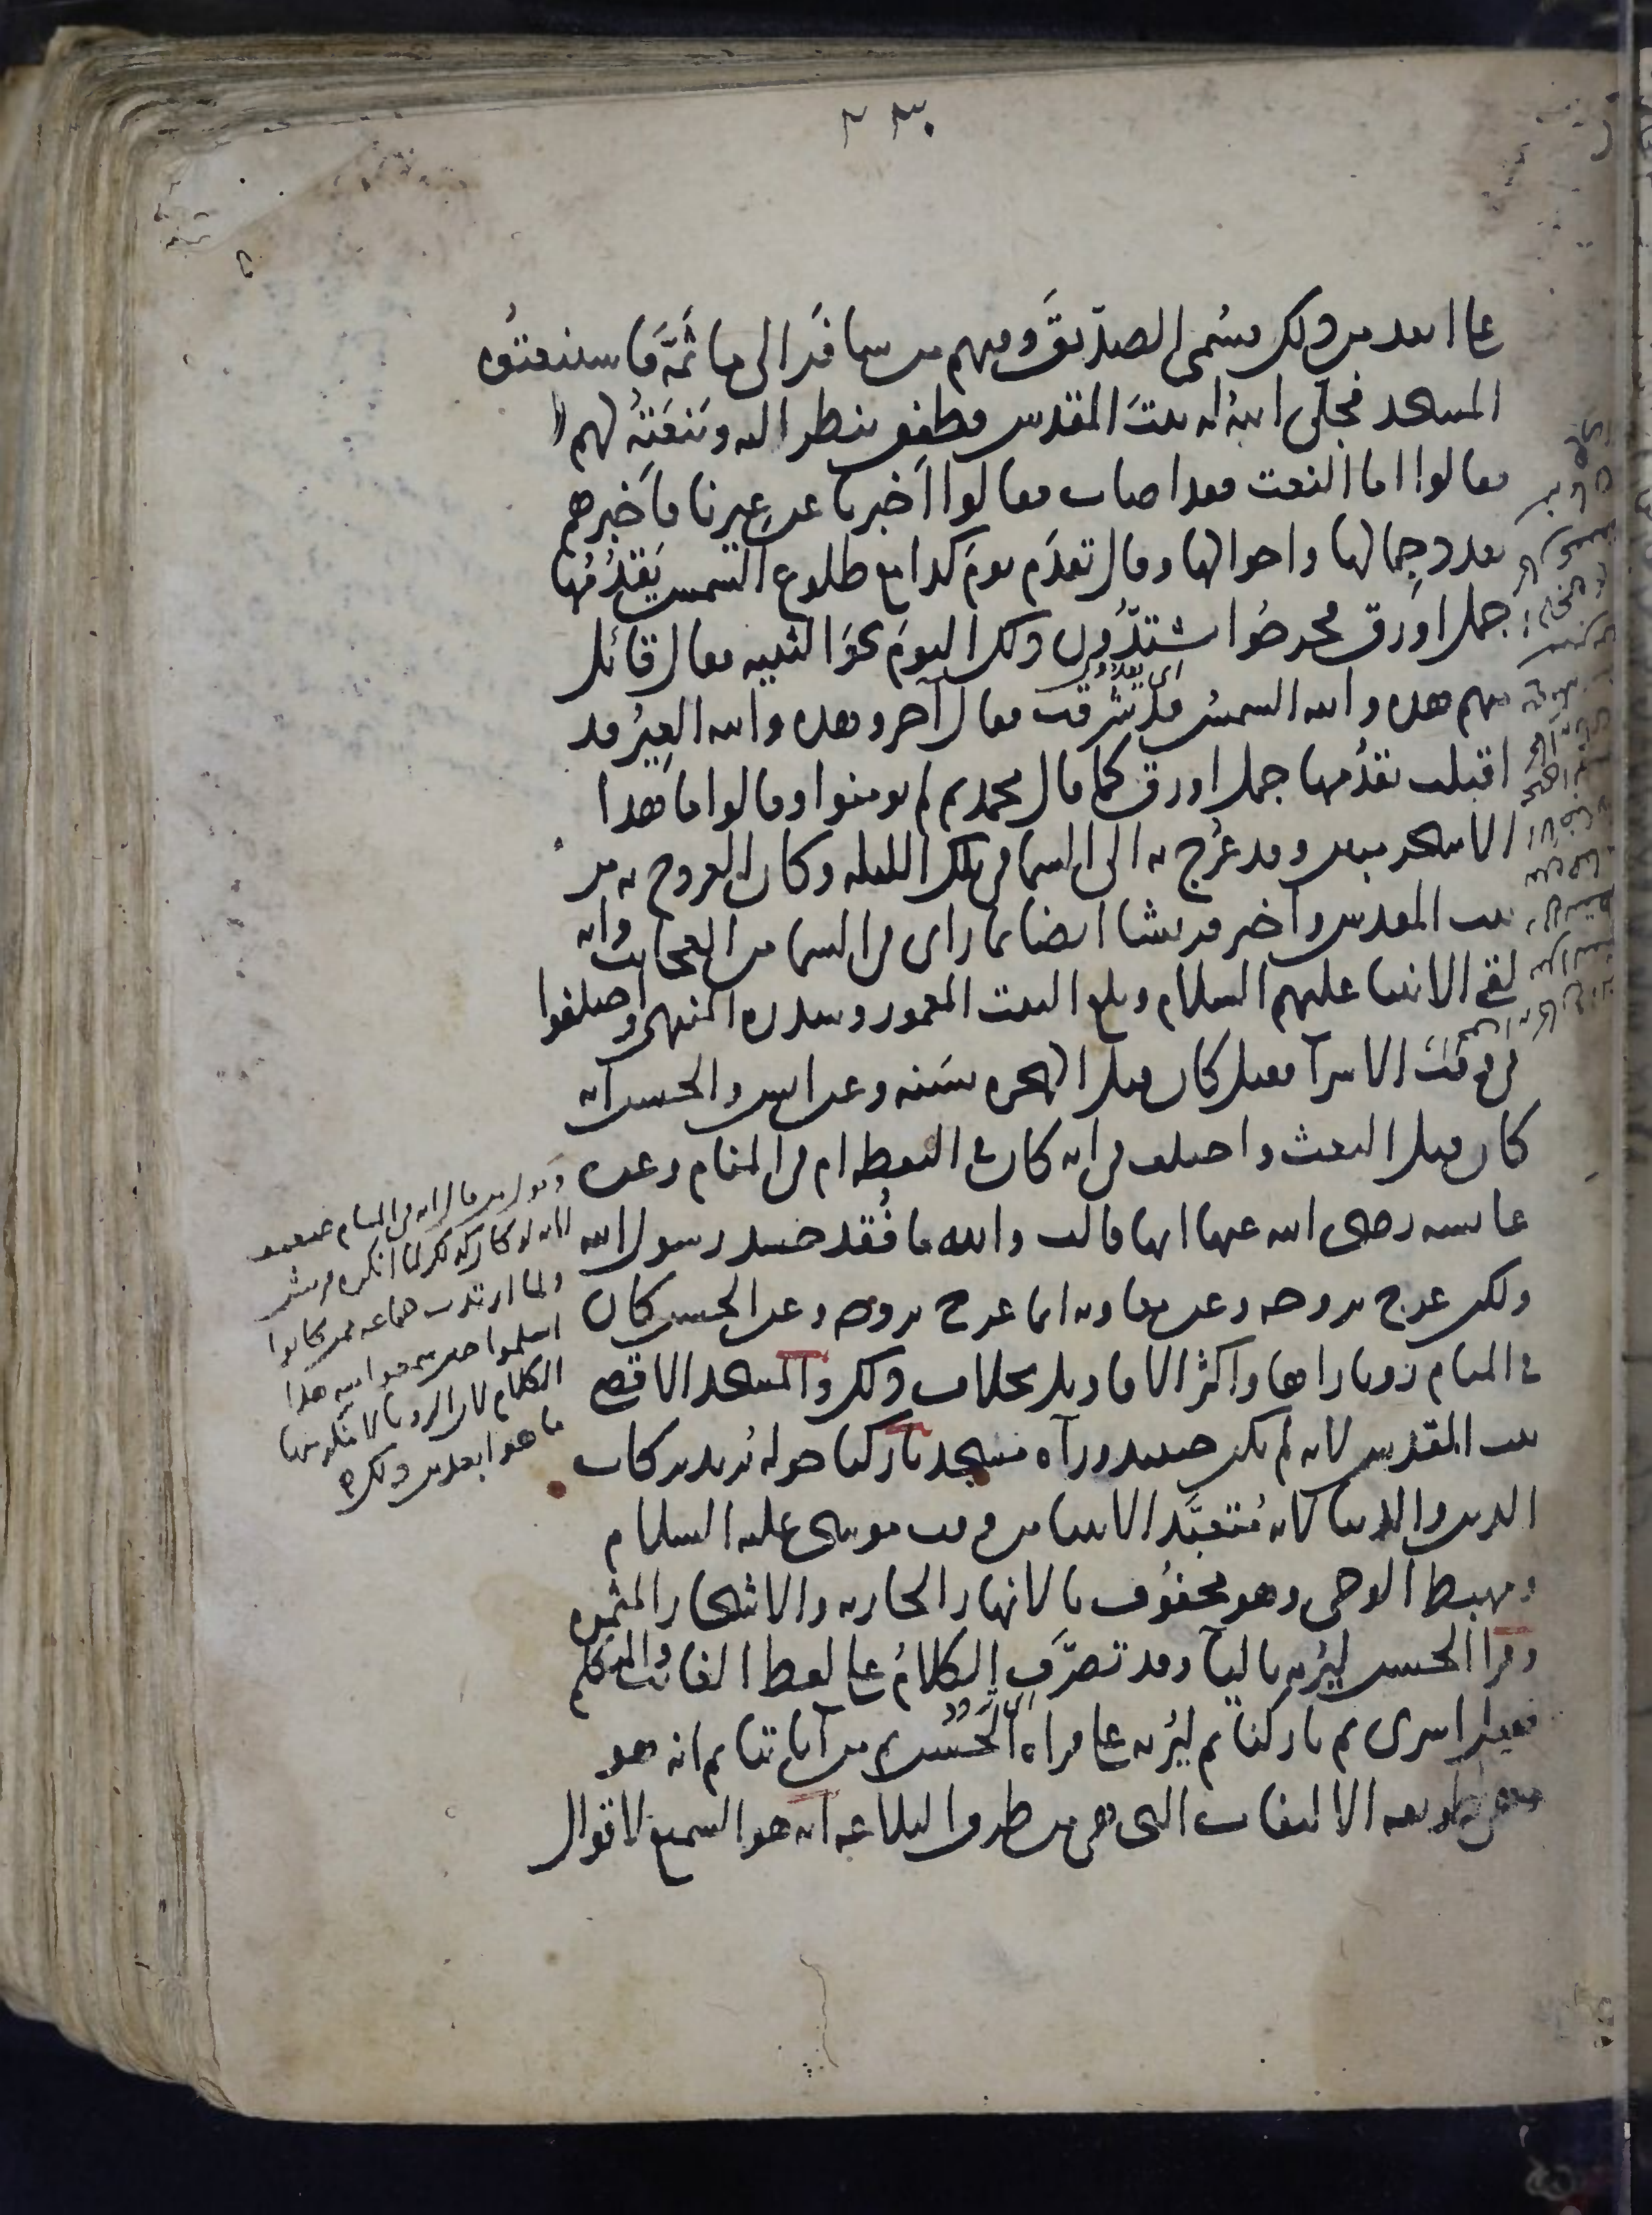 ٢٣٠
على ابعد من ذلك فسُمى الصدّيقَ وفيهم من سافَر الى ما ثَمَّ فاستنعتوُه
المسجد فجلّى اللهُ له بيتَ المقدس وطفِق ينظر اليه ويَنعَتهُ لهم
فقالوا اما النعت فقد اصاب فقالوا اَخبرنا عن عِيرنا فاَخبرهم
بعدد جِمالها واحوالها وقال تقدَم يومَ كذا مع طلوع الشمس يَقدُمُها
جمل اورق فخرجُوا يشتدُّون ذلك اليومَ نحوَ الثنيه فقال قائل
اى يعدون
منهم هذه والله الشمسُ قد شرقت فقال آخر وهذه والله العِيرُ قد
اقبلت يقدُمها جمل اورق كما قال محمد ثم لم يومنوا وقالوا ما هذا
الا سحر مبين وقد عُرِج به الى السما فى تلك الليله وكان العروج به من
بيت المقدس واَخبر قريشا ايضا بما راى فى السما من العجائب وانه
لقى الانبيا عليهم السلام وبلغ البيت المعمور وسدره المنتهى واختلفوا
فى وقت الاسرآ فقيل كان قبل الهجره بسَنه وعن انس والحسن انه
كان قبل البعث واختلف فى انه كان فى اليقظه ام فى المنام وعن
عايشه رضى الله عنها انها قالت والله ما فُقد جسد رسول الله
ولكن عرج بروحه وعن معاويه انما عرج بروحه وعن الحسن كان
فى المنام رويا راها واكثر الاقاويل بخلاف ذلك والمسجد الاقصى
بيت المقدس لانه لم يكن حينئذ ورآه مسجد باركنا حوله يُريد بركات
الدين والدنيا لانه مُتعبَّد الانبيا من وقت موسى عليه السلام
ومهبط الوحى وهو محفوُف بالانهار الجاريه والاشجار المثمره
وقرا الحسن ليُريه باليآ وقد تصرَّف الكلامُ على لفظ الغائب والمتكلم
فقيل اسرى ثم باركنا ثم ليُريه على قراه الحَسن ثم من آياتنا ثم انه هو
وهى طريقه الالتفات التى هى من طرق البلاغه انه هو السميع لاقوال
وقول من قال انه فى المنام ضعيف
لانه لو كان كذلك لما انكره قريش
ولما ارتدت جماعه ممن كانوا
اسلموا حين سمعوا منه هذا
الكلام لان الرويا لا ينكر منها
ما هو ابعد من ذلك